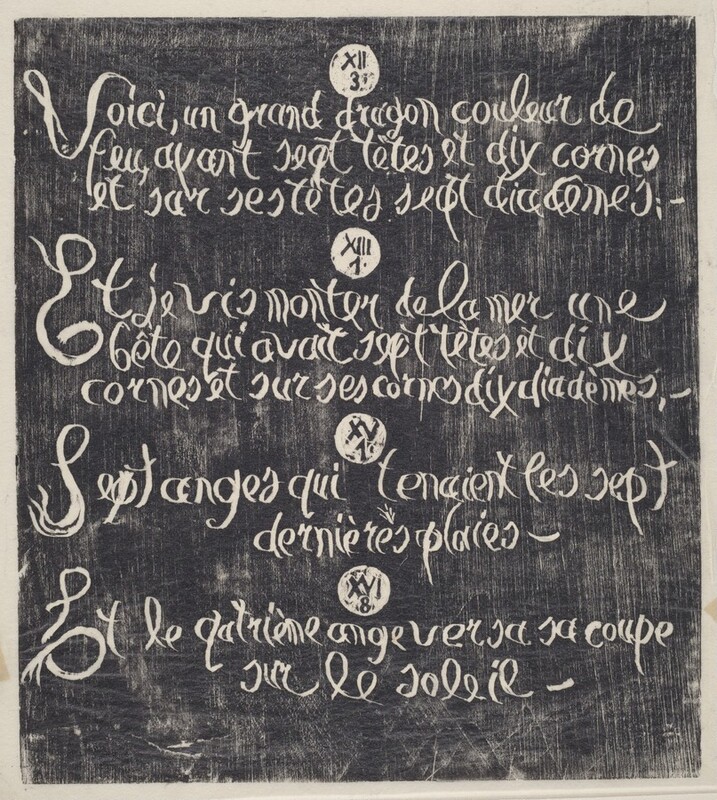 XII
3:
Voici, un grand dragon couleur de
feu, ayant sept têtes et dix cornes
et sur ses têtes sept diadèmes;-
XIII
1.
Et je vis monter de la mer une
bête qui avait sept têtes et dix
cornes et sur ses cornes dix diadèmes,-
XV
1.
Sept anges qui tenaient les sept
dernières plaies -
XVI
8.
Et le qatrième ange versa sa coupe
sur le soleil -